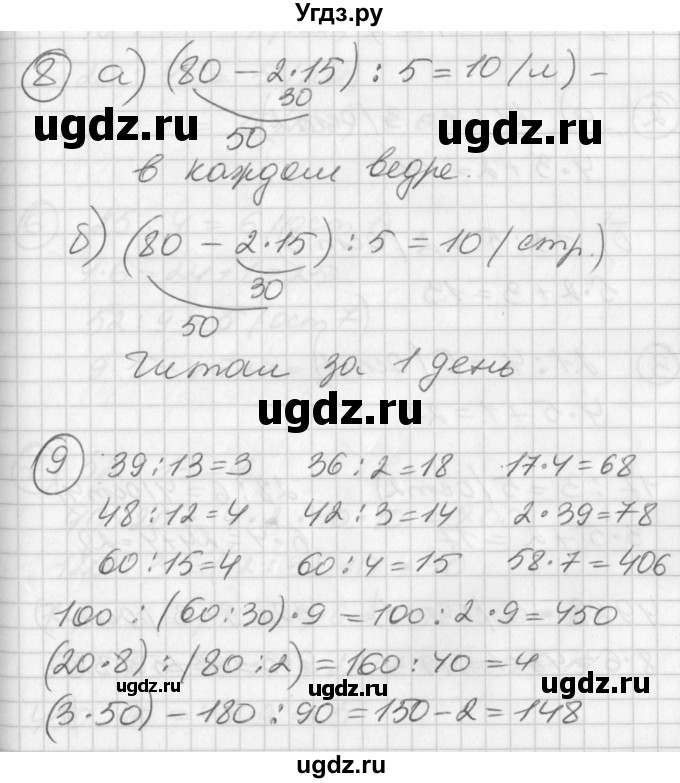 Угдз.ру
8 а) (80 – 2·15) : 5 = 10 (л) –
30
50
ugdz.ru ugdz.ru
в каждом ведре.
б) (80 – 2·15) : 5 = 10 (стр.)
30
50
Читал за 1 день
ugdz.ru
9 39:13=3 36:2=18 17·4=68
48:12=4 42:3=14 2·39=78
60:15=4 60:4=15 58·7=406
100 : (60:30)·9 = 100:2·9=450
(20·8) : (80:2) = 160:40 = 4
ugdz.ru ugdz.ru ugdz.ru
(3·50) – 180:90 = 150–2 = 148